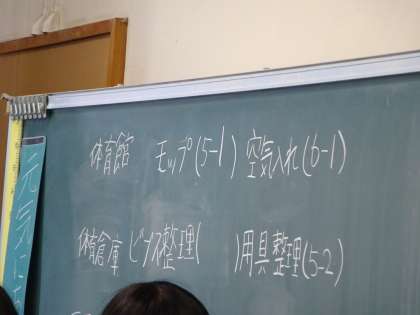 体育館 モップ(5-1) 空気入れ(6-1)
体育倉庫 ビブス整理( )用具整理(5-2)
元気に